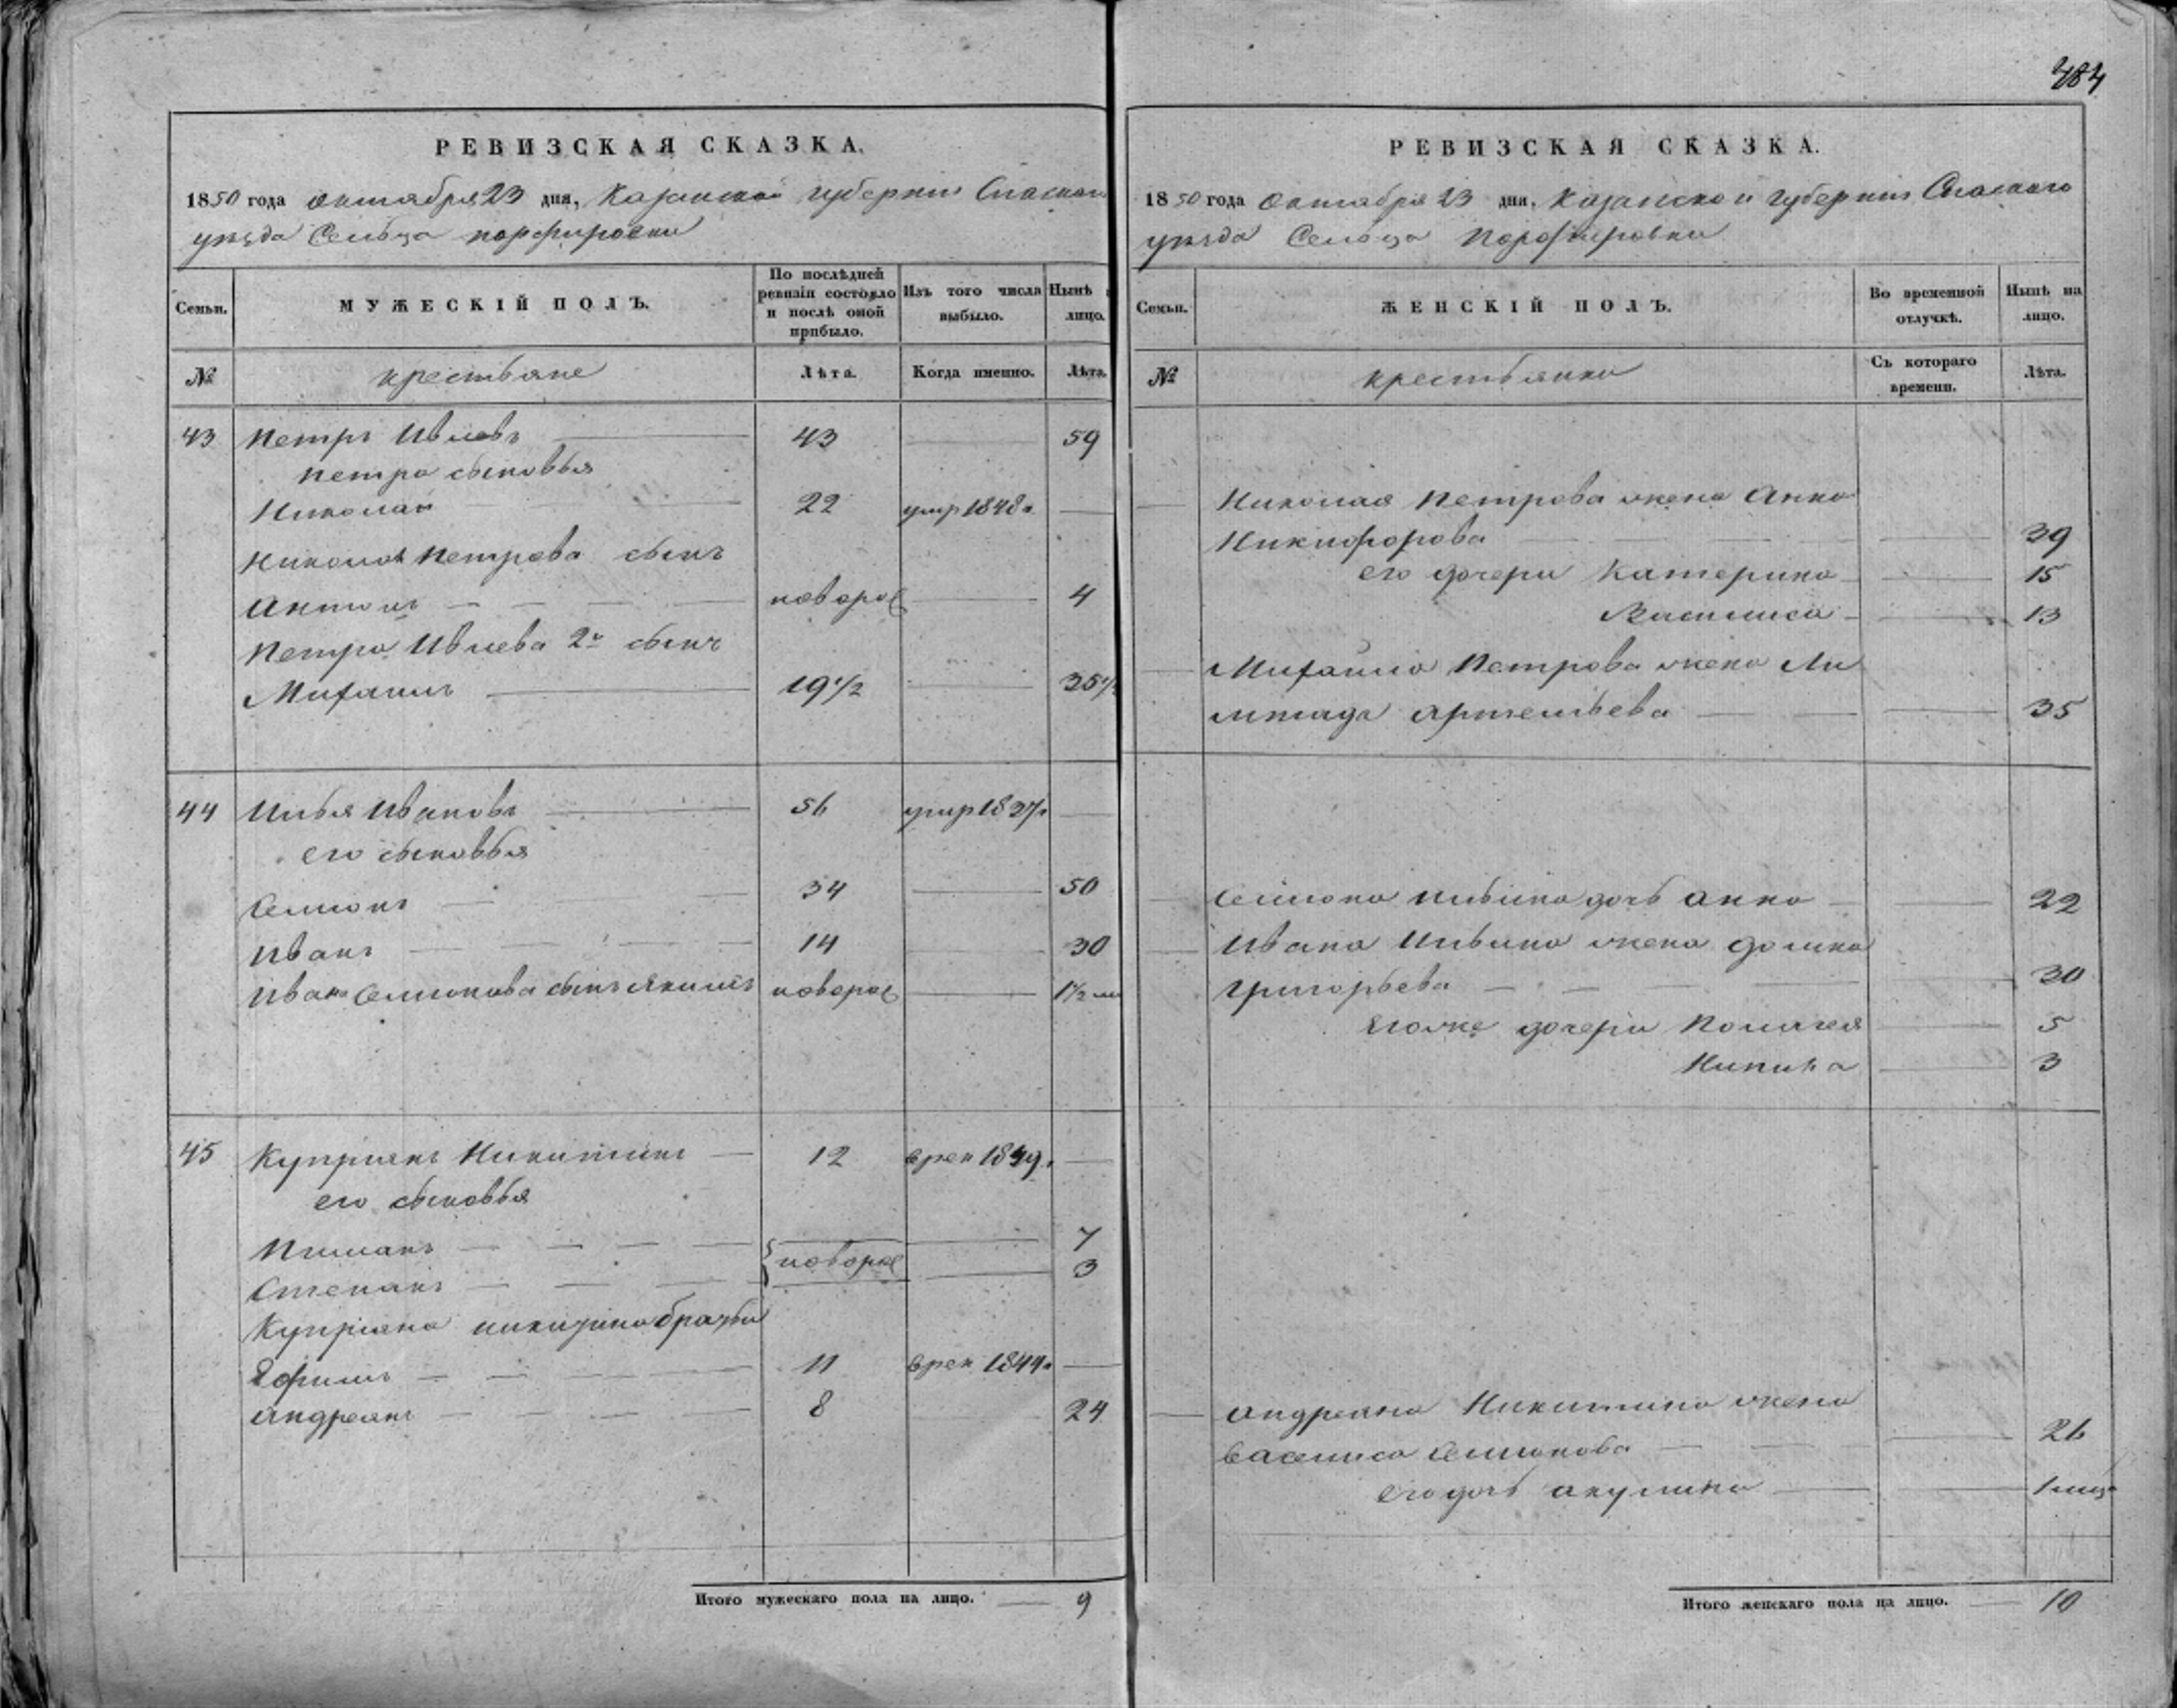 484
РЕВИЗСКАЯ СКАЗКА.
1850 года октября 23 дня, Казанской губернии Спаскаго
уезда Сельца порфировки
Семьи.
МУЖЕСКІЙ ПОЛЪ.
По послѣдней ревизіи состояло и послѣ оной прибыло.
Изъ того числа выбыло.
Нынѣ лицо.
№
крестьяне
Лѣта.
Когда именно.
Лѣта.
43 Петръ Ивлевъ 43 59
Петра сыновья
Николай 22 умр 1848
Николая Петрова сынъ
Антонъ новорож 4
Петра Ивлева 2й сынъ
Михаилъ 19 1/2 35 1/2
44 Илья Ивановъ 56 умр 1837
его сыновья
Семионъ 34 50
Иванъ 14 30
Ивана Семионова сынъ Якимъ новорож 1 1/2
45 Куприянъ Никитинъ 12 1849
его сыновья
7
Степанъ новорож 3
Куприяна никитина братья
Ефимъ 11 1844
Андреянъ 8 24
Итого мужескаго пола на лицо. 9
РЕВИЗСКАЯ СКАЗКА.
1850 года октября 23 дня, Казанской губернии Спаскаго
уезда Сельца Порфировки
Семьи.
ЖЕНСКІЙ ПОЛЪ.
Во временной отлучкѣ.
Нынѣ на лицо.
№
крестьянки
Съ котораго времени.
Лѣта.
Николая Петрова жена Анна
Никифорова 39
его дочери Катерина 15
Василиса 13
Михайла Петрова жена
Артемьева 35
Семиона Ильина дочь Анна 22
Ивана Ильина жена домна
Григорьева 30
дочери Полагея 5
3
Андреяна Никитина жена
Василиса Семионова 26
Его дочь Акулина
Итого женскаго пола на лицо. 10